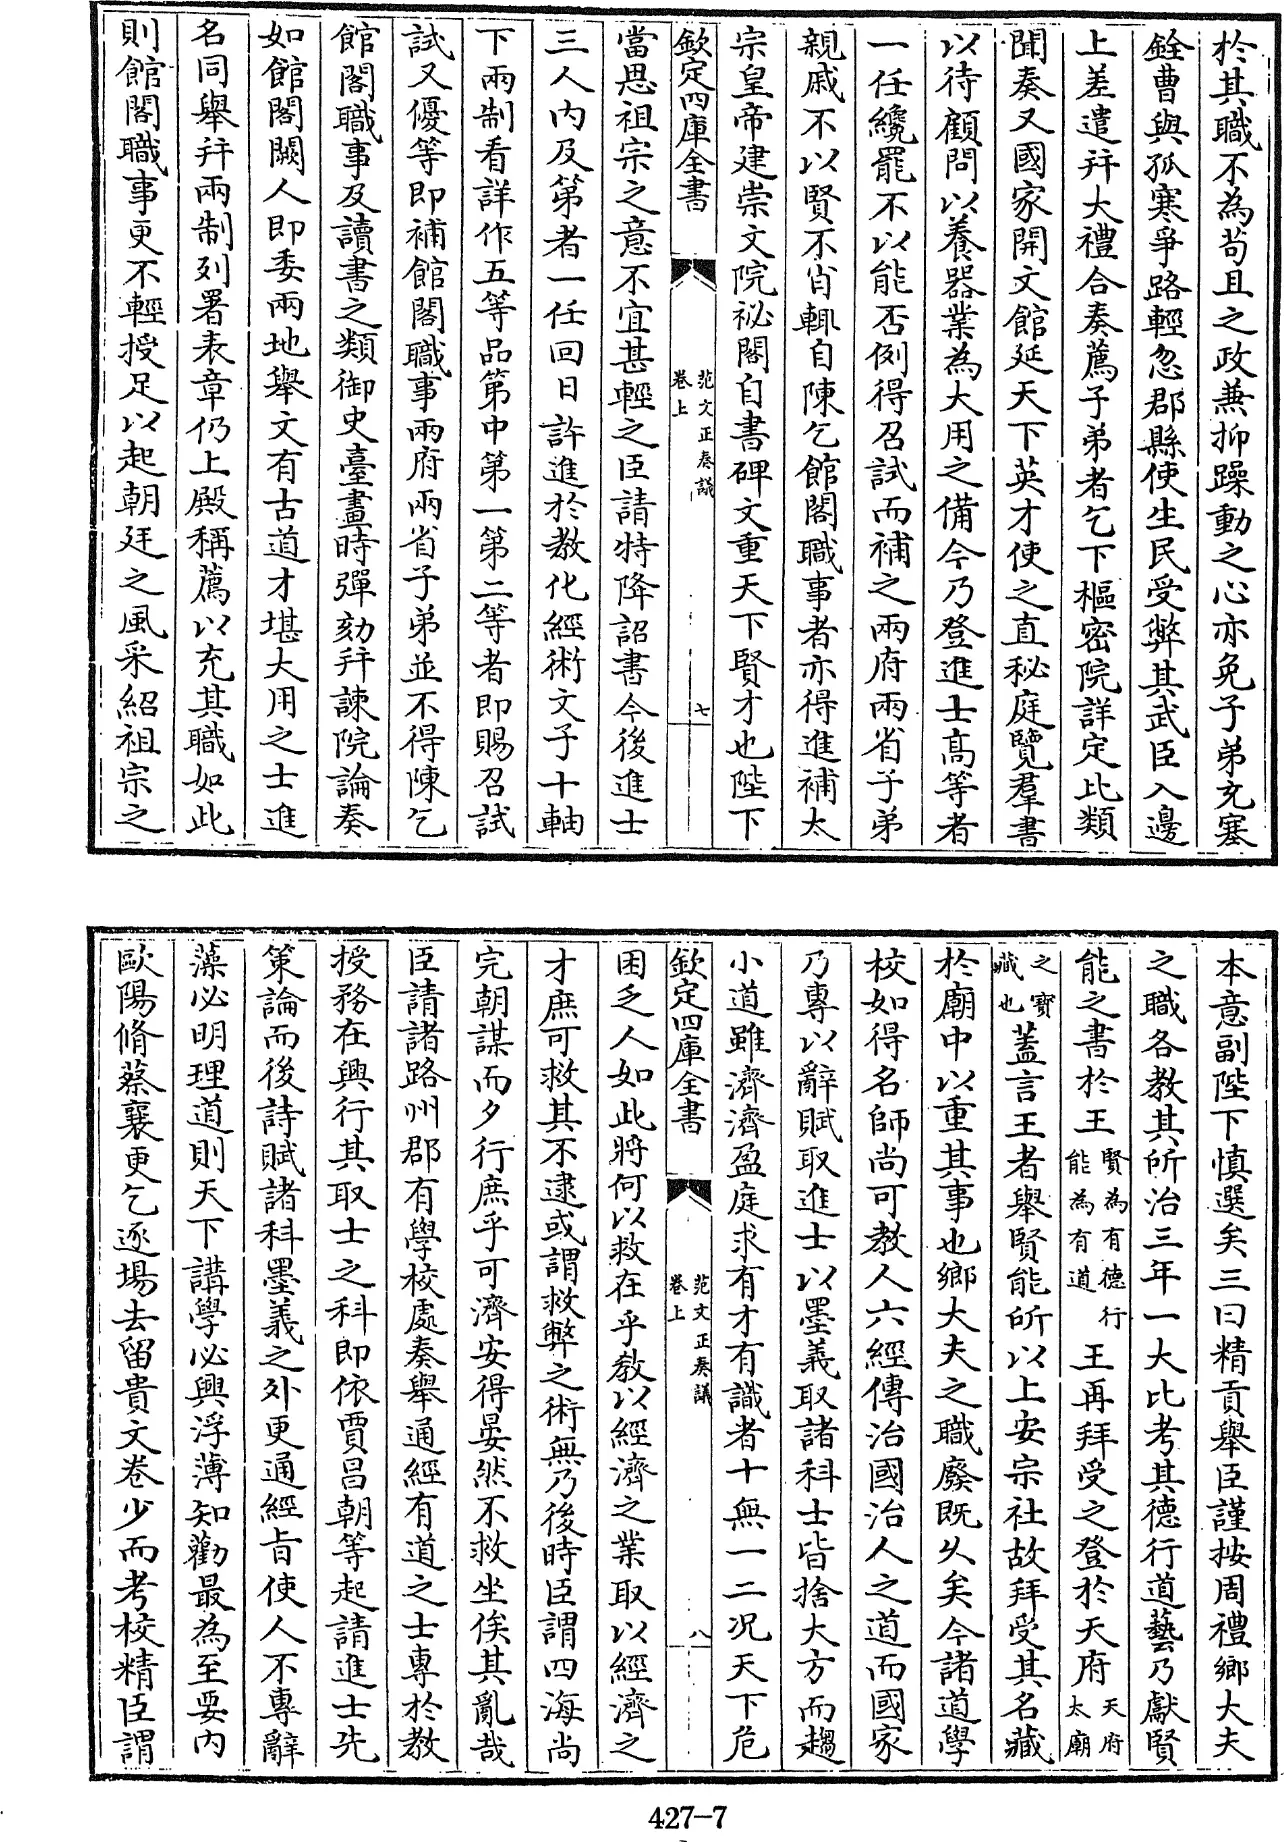 於其職不為苟且之政兼抑躁動之心亦免子弟充塞
銓曹與孤寒爭路輕忽郡縣使生民受弊其武臣入邊
上差遣并大禮合奏薦子弟者乞下樞密院詳定比類
聞奏又國家開文館延天下英才使之直秘庭覽羣書
以待顧問以養器業為大用之備今乃登進士高等者
一任纔罷不以能否例得召試而補之兩府兩省子弟
親戚不以賢不肖輒自陳乞館閣職事者亦得進補太
宗皇帝建崇文院祕閣自書碑文重天下賢才也陛下
欽定四庫全書
范文正奏議
卷上
七
當思祖宗之意不宜甚輕之臣請特降詔書今後進士
三人內及第者一任回日許進於教化經術文子十軸
下兩制看詳作五等品第中第一第二等者即賜召試
試又優等即補館閣職事兩府兩省子弟並不得陳乞
館閣職事及讀書之類御史臺畫時彈劾并諫院論奏
如館閣闕人即委兩地舉文有古道才堪大用之士進
名同舉并兩制列署表章仍上殿稱薦以充其職如此
則館閣職事更不輕授足以起朝廷之風采紹祖宗之
本意副陛下慎選矣三曰精貢舉臣謹按周禮鄉大夫
之職各教其所治三年一大比考其德行道藝乃獻賢
能之書於王賢為有德行能為有道王再拜受之登於天府天府太廟
之寶藏也蓋言王者舉賢能所以上安宗社故拜受其名藏
於廟中以重其事也鄉大夫之職廢既久矣今諸道學
校如得名師尚可教人六經傳治國治人之道而國家
乃專以辭賦取進士以墨義取諸科士皆捨大方而趨
小道雖濟濟盈庭求有才有識者十無一二况天下危
欽定四庫全書
范文正奏議
卷上
八
困乏人如此將何以救在乎教以經濟之業取以經濟之
才庶可救其不逮或謂救弊之術無乃後時臣謂四海尚
完朝謀而夕行庶乎可濟安得晏然不救坐俟其亂哉
臣請諸路州郡有學校處奏舉通經有道之士專於教
授務在興行其取士之科即依賈昌朝等起請進士先
策論而後詩賦諸科墨義之外更通經旨使人不專辭
藻必明理道則天下講學必興浮薄知勸最為至要內
歐陽脩蔡襄更乞逐場去留貴文卷少而考校精臣謂
427-7